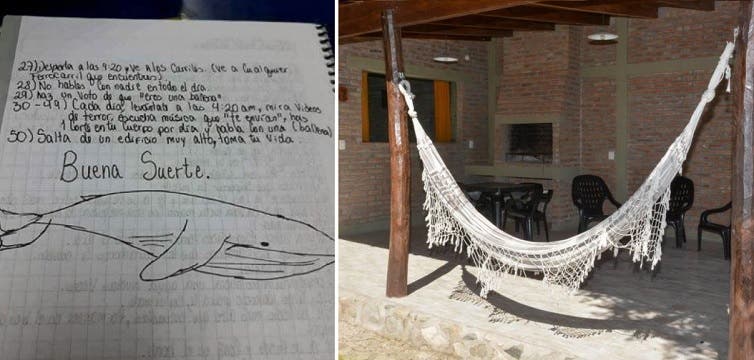 27) Despierta a las 4:20, ve a los Carriles. (ve a Cualquier
Ferrocarril que encuentres)
28) No hables con nadie en todo el dia.
29) Haz un Voto de que "eres una ballena"
30-49) Cada dia levantate a las 4:20 am, mira Videos
de terror, escucha música que "te envían", has
1 Corte en tu cuerpo por día y habla con una (ballena)
50) Salta de un edificio muy alto, toma tu Vida.
Buena Suerte.